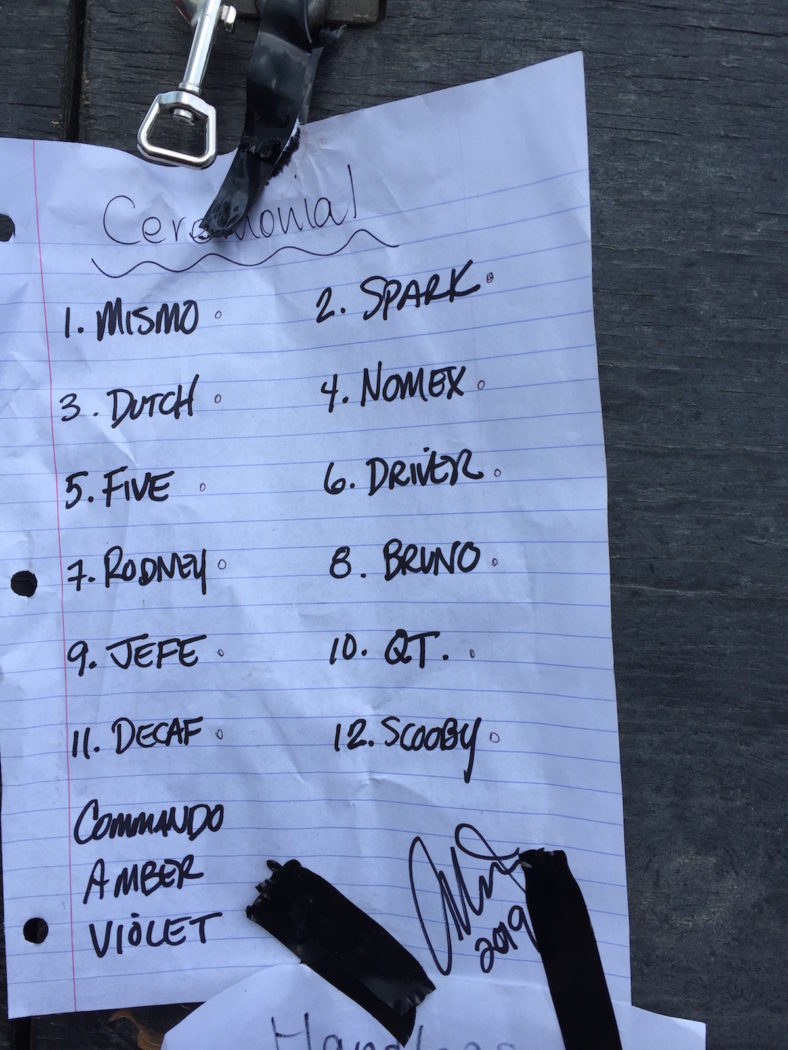 Ceremonial
1. MISMO 2. SPARK
3. DUTCH 4. NOMEX
5. FIVE 6. DRIVER
7. RODNEY 8. BRUNO
9. JEFE 10. QT.
11. DECAF 12. SCOOBY
COMMANDO
AMBER
VIOLET
2019